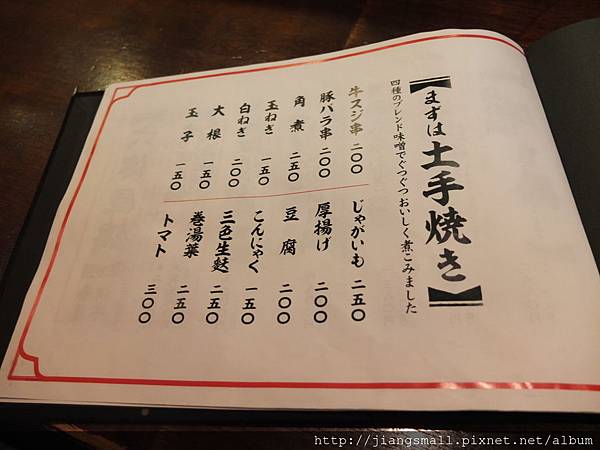 【まずは土手焼き】
四種のブレンド味噌でぐつぐつおいしく煮こみました
牛スジ串 二〇〇
豚バラ串 二〇〇
角煮 二五〇
玉ねぎ 一五〇
白ねぎ 二〇〇
大根 一五〇
玉子 一五〇
じゃがいも 二五〇
厚揚げ 二〇〇
豆腐 二〇〇
こんにゃく 一五〇
三色生麩 二五〇
巻湯葉 二五〇
トマト 三〇〇
http://jiangsmall.pixnet.net/album